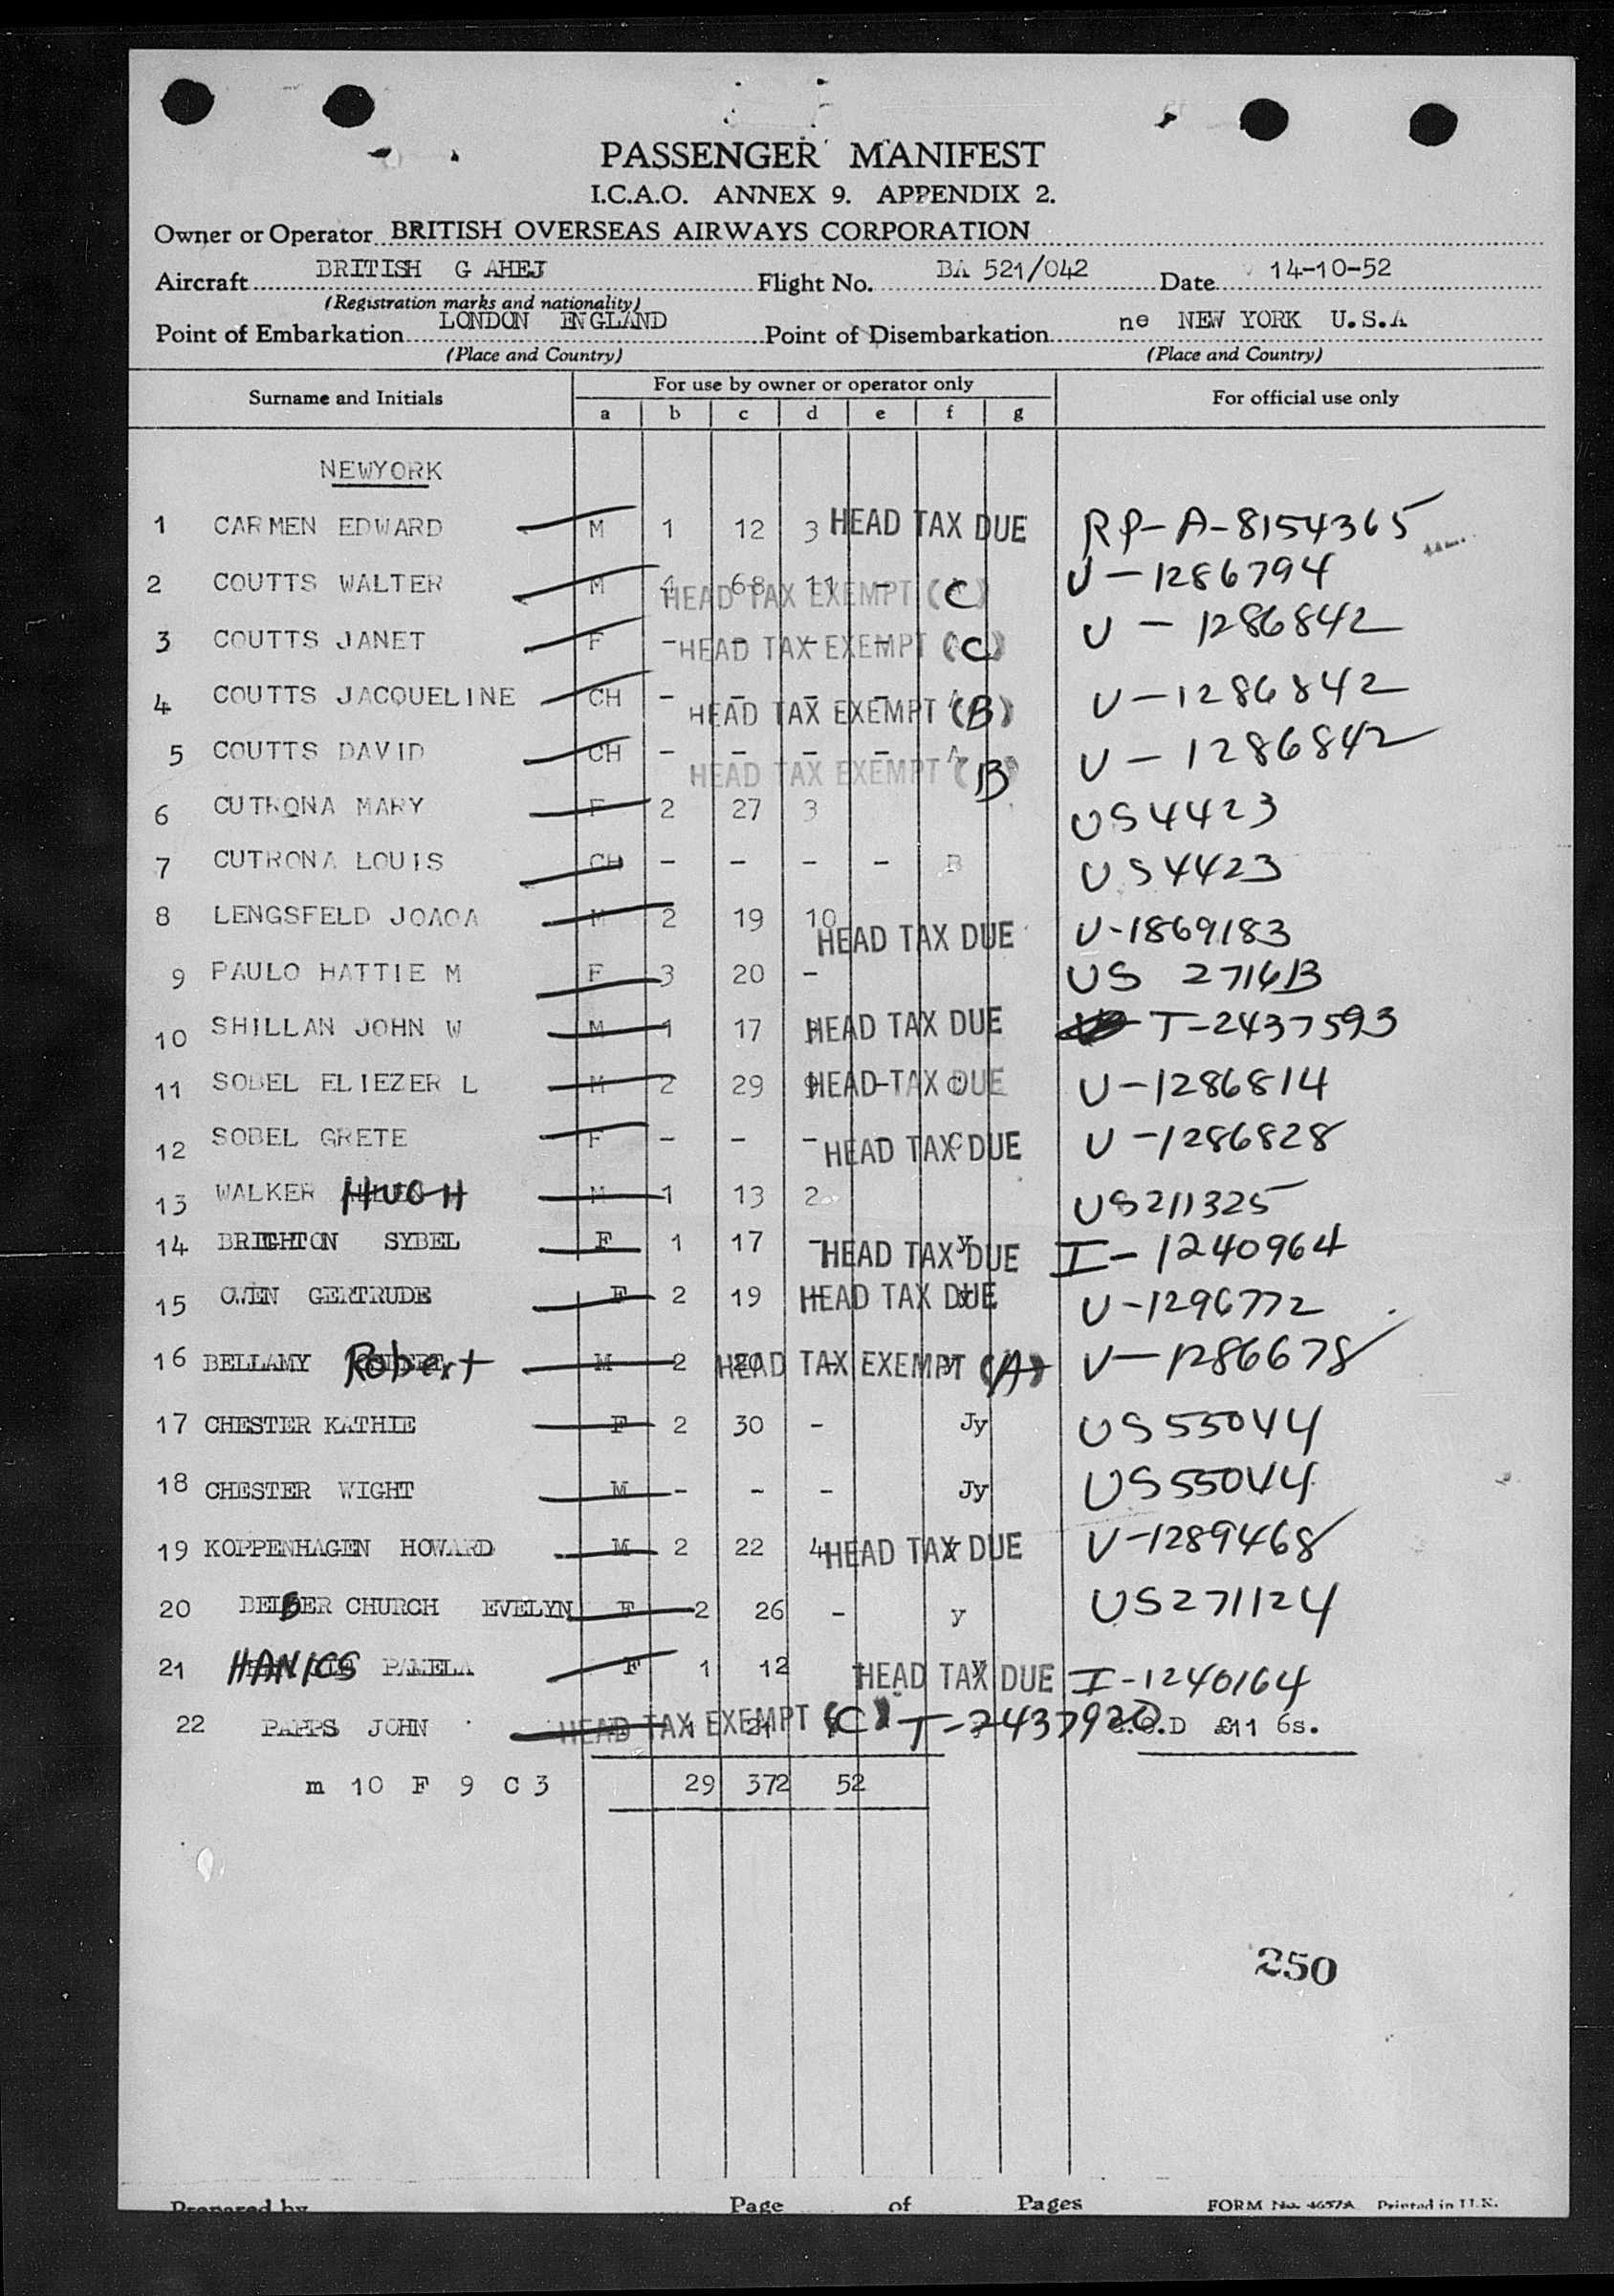 PASSENGER MANIFEST
I.C.A.O. ANNEX 9. APPENDIX 2.
Owner or Operator BRITISH OVERSEAS AIRWAYS CORPORATION
Aircraft BRITISH G AHEJ Flight No. BA 521/042 Date 14-10-52
(Registration marks and nationality)
Point of Embarkation LONDON ENGLAND Point of Disembarkation ne NEW YORK U.S.A
(Place and Country) (Place and Country)
Surname and Initials For use by owner or operator only For official use only
a b c d e f g
NEWYORK
1 CARMEN EDWARD M 1 12 3 HEAD TAX DUE RP-A-8154365
2 COUTTS WALTER M 4 68 11 - HEAD TAX EXEMPT (C) U-1286794
3 COUTTS JANET F - - - - HEAD TAX EXEMPT (C) U-1286842
4 COUTTS JACQUELINE CH - - - - HEAD TAX EXEMPT (B) U-1286842
5 COUTTS DAVID CH - - - - HEAD TAX EXEMPT (B) U-1286842
6 CUTRONA MARY F 2 27 3 US4423
7 CUTRONA LOUIS CH - - - - B US4423
8 LENGSFELD JOAOA M 2 19 10 HEAD TAX DUE U-1869183
9 PAULO HATTIE M F 3 20 - US 2716B
10 SHILLAN JOHN W M 1 17 HEAD TAX DUE T-2437593
11 SOBEL ELIEZER L M 2 29 9 HEAD TAX DUE U-1286814
12 SOBEL GRETE F - - - - C HEAD TAX DUE U-1286828
13 WALKER HUGH M 1 13 2 US211325
14 BRIGHTON SYBEL F 1 17 - y HEAD TAX DUE I-1240964
15 OWEN GERTRUDE F 2 19 HEAD TAX DUE U-1296772
16 BELLAMY Robert M 2 20 - y HEAD TAX EXEMPT (A) U-1286678
17 CHESTER KATHIE F 2 30 - Jy US55044
18 CHESTER WIGHT M - - - Jy US55044
19 KOPPENHAGEN HOWARD M 2 22 4 HEAD TAX DUE U-1289468
20 BEIBER CHURCH EVELYN F 2 26 - y US271124
21 PAMELA F 1 12 y HEAD TAX DUE I-1240164
22 PAPPS JOHN 1 21 HEAD TAX EXEMPT (C) T-2437920 £11 6s.
m 10 F 9 C 3 29 372 52
250
Prepared by Page of Pages FORM No. 4657A Printed in U.K.